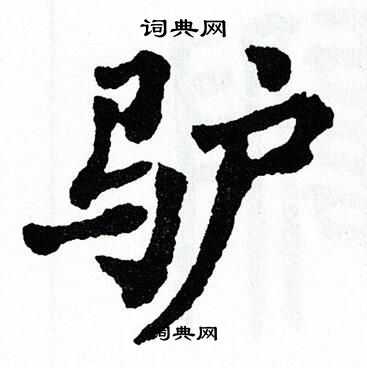 词典网
驴
词典网